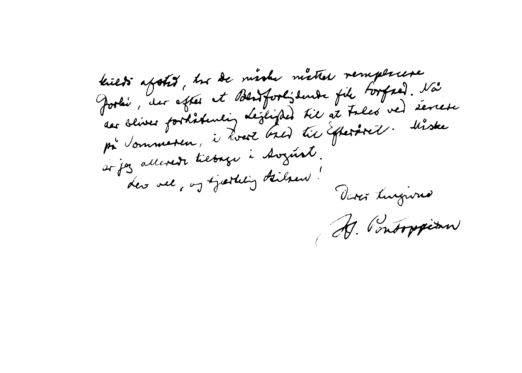 afsted, har De måske måttet remplacere
Gorki, der efter et Blodforbydende fik Forfald. Nå
der bliver forhåbentlig Lejlighed til at tales ved senere
på Sommeren, i hvert Fald til Efteråret. Måske
er jeg allerede tilbage i August.
Lev vel, og hjertelig Hilsen!
Deres hengivne
H. Pontoppidan